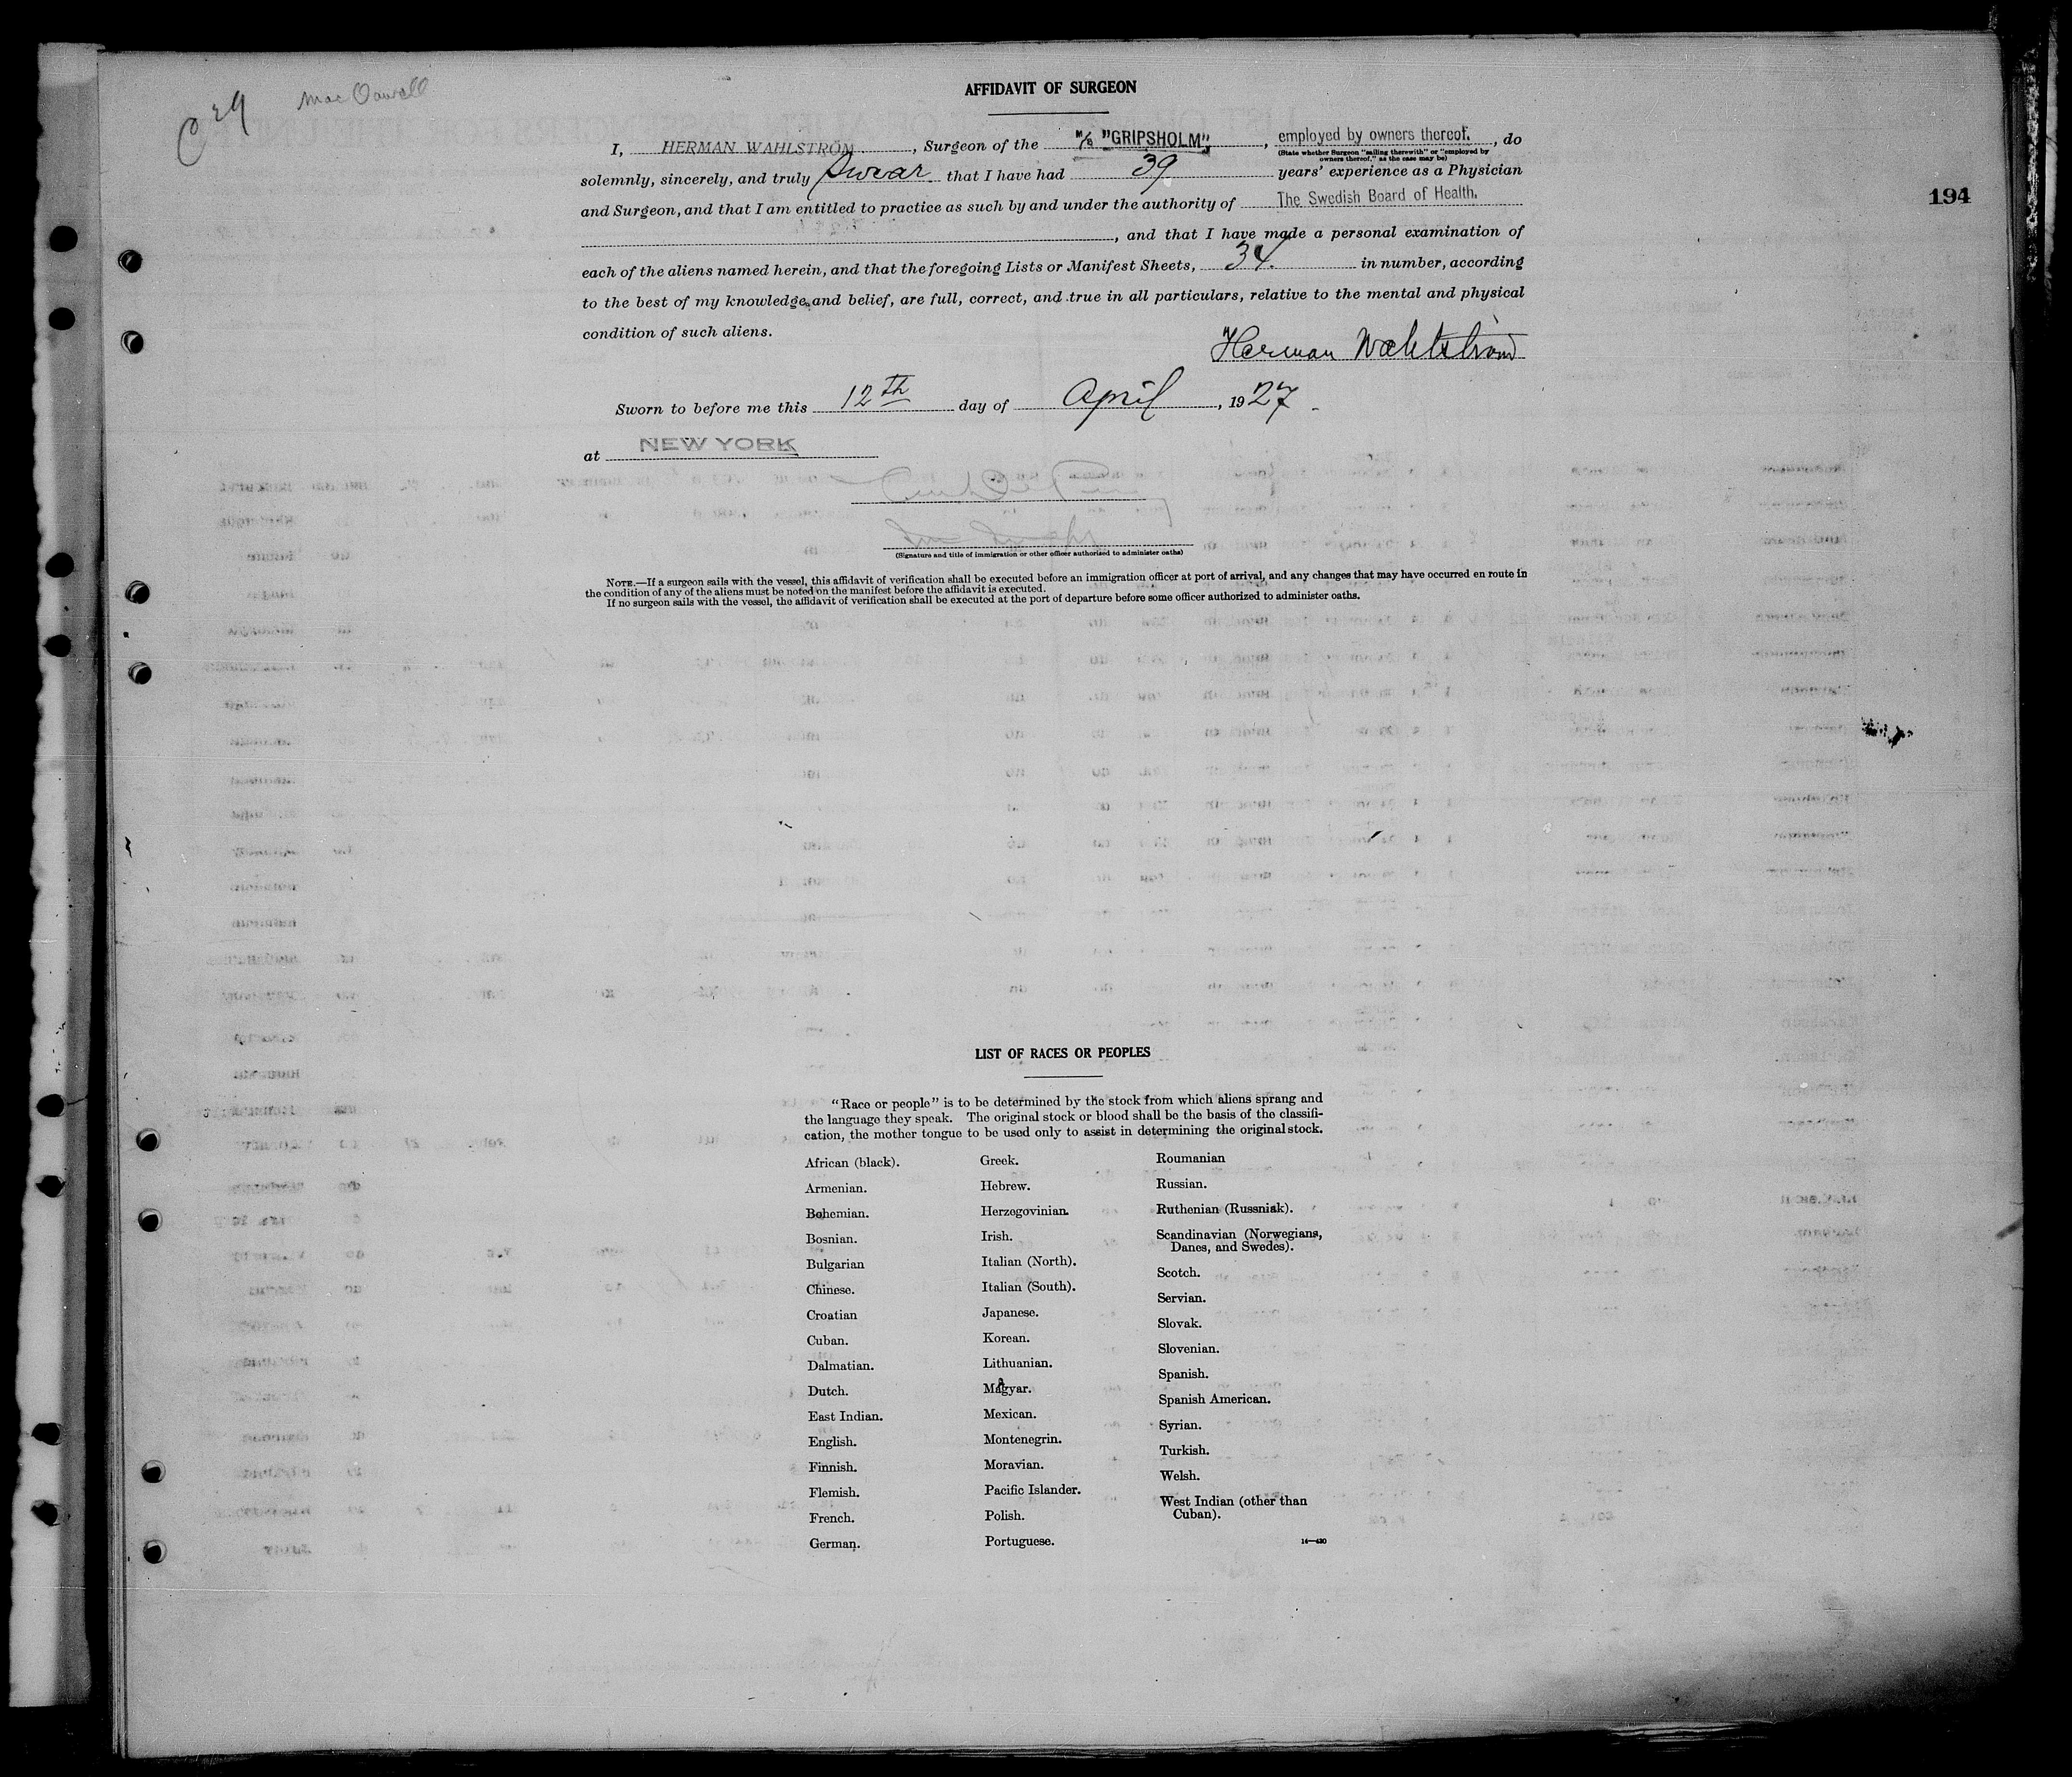 C 29
Mac Dowell
AFFIDAVIT OF SURGEON
I, HERMAN WAHLSTRÖM, Surgeon of the M/S "GRIPSHOLM", employed by owners thereof., do
(State whether Surgeon "sailing therewith" or "employed by
owners thereof," as the case may be)
solemnly, sincerely, and truly swear that I have had 39 years' experience as a Physician
194
and Surgeon, and that I am entitled to practice as such by and under the authority of The Swedish Board of Health.
, and that I have made a personal examination of
each of the aliens named herein, and that the foregoing Lists or Manifest Sheets, 34. in number, according
to the best of my knowledge and belief, are full, correct, and true in all particulars, relative to the mental and physical
condition of such aliens.
Herman Wahlström
Sworn to before me this 12th day of April, 1927.
at NEW YORK
(Signature and title of immigration or other officer authorized to administer oaths)
NOTE.—If a surgeon sails with the vessel, this affidavit of verification shall be executed before an immigration officer at port of arrival, and any changes that may have occurred en route in
the condition of any of the aliens must be noted on the manifest before the affidavit is executed.
If no surgeon sails with the vessel, the affidavit of verification shall be executed at the port of departure before some officer authorized to administer oaths.
LIST OF RACES OR PEOPLES
"Race or people" is to be determined by the stock from which aliens sprang and
the language they speak. The original stock or blood shall be the basis of the classifi-
cation, the mother tongue to be used only to assist in determining the original stock.
African (black).
Armenian.
Bohemian.
Bosnian.
Bulgarian
Chinese.
Croatian
Cuban.
Dalmatian.
Dutch.
East Indian.
English.
Finnish.
Flemish.
French.
German.
Greek.
Hebrew.
Herzegovinian.
Irish.
Italian (North).
Italian (South).
Japanese.
Korean.
Lithuanian.
Magyar.
Mexican.
Montenegrin.
Moravian.
Pacific Islander.
Polish.
Portuguese.
Roumanian
Russian.
Ruthenian (Russniak).
Scandinavian (Norwegians,
Danes, and Swedes).
Scotch.
Servian.
Slovak.
Slovenian.
Spanish.
Spanish American.
Syrian.
Turkish.
Welsh.
West Indian (other than
Cuban).
14—430